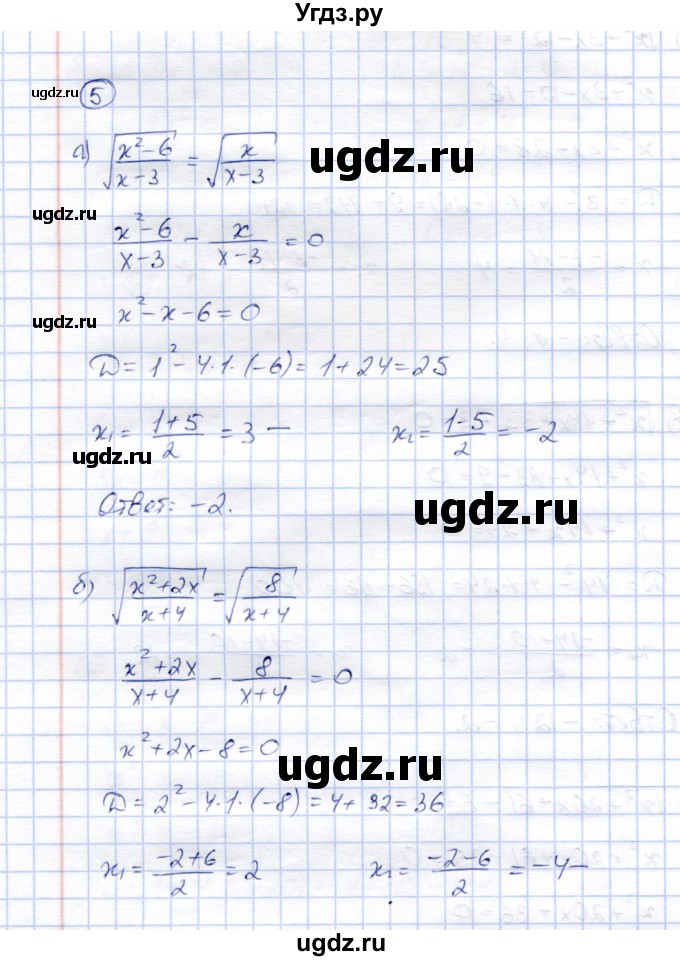 Угдз.ру
ugdz.ru
5
а) √((x²-6)/(x-3)) = √(x/(x-3))
ugdz.ru
ugdz.ru
(x²-6)/(x-3) - x/(x-3) = 0
ugdz.ru
x²-x-6=0
D = 1²-4·1·(-6) = 1+24=25
x₁ = (1+5)/2 = 3 —
x₂ = (1-5)/2 = -2
ugdz.ru
Ответ: -2.
ugdz.ru
б) √((x²+2x)/(x+4)) = √(8/(x+4))
(x²+2x)/(x+4) - 8/(x+4) = 0
x²+2x-8=0
ugdz.ru
D = 2²-4·1·(-8) = 4+32=36
x₁ = (-2+6)/2 = 2
x₂ = (-2-6)/2 = -4 —
ugdz.ru
ugdz.ru